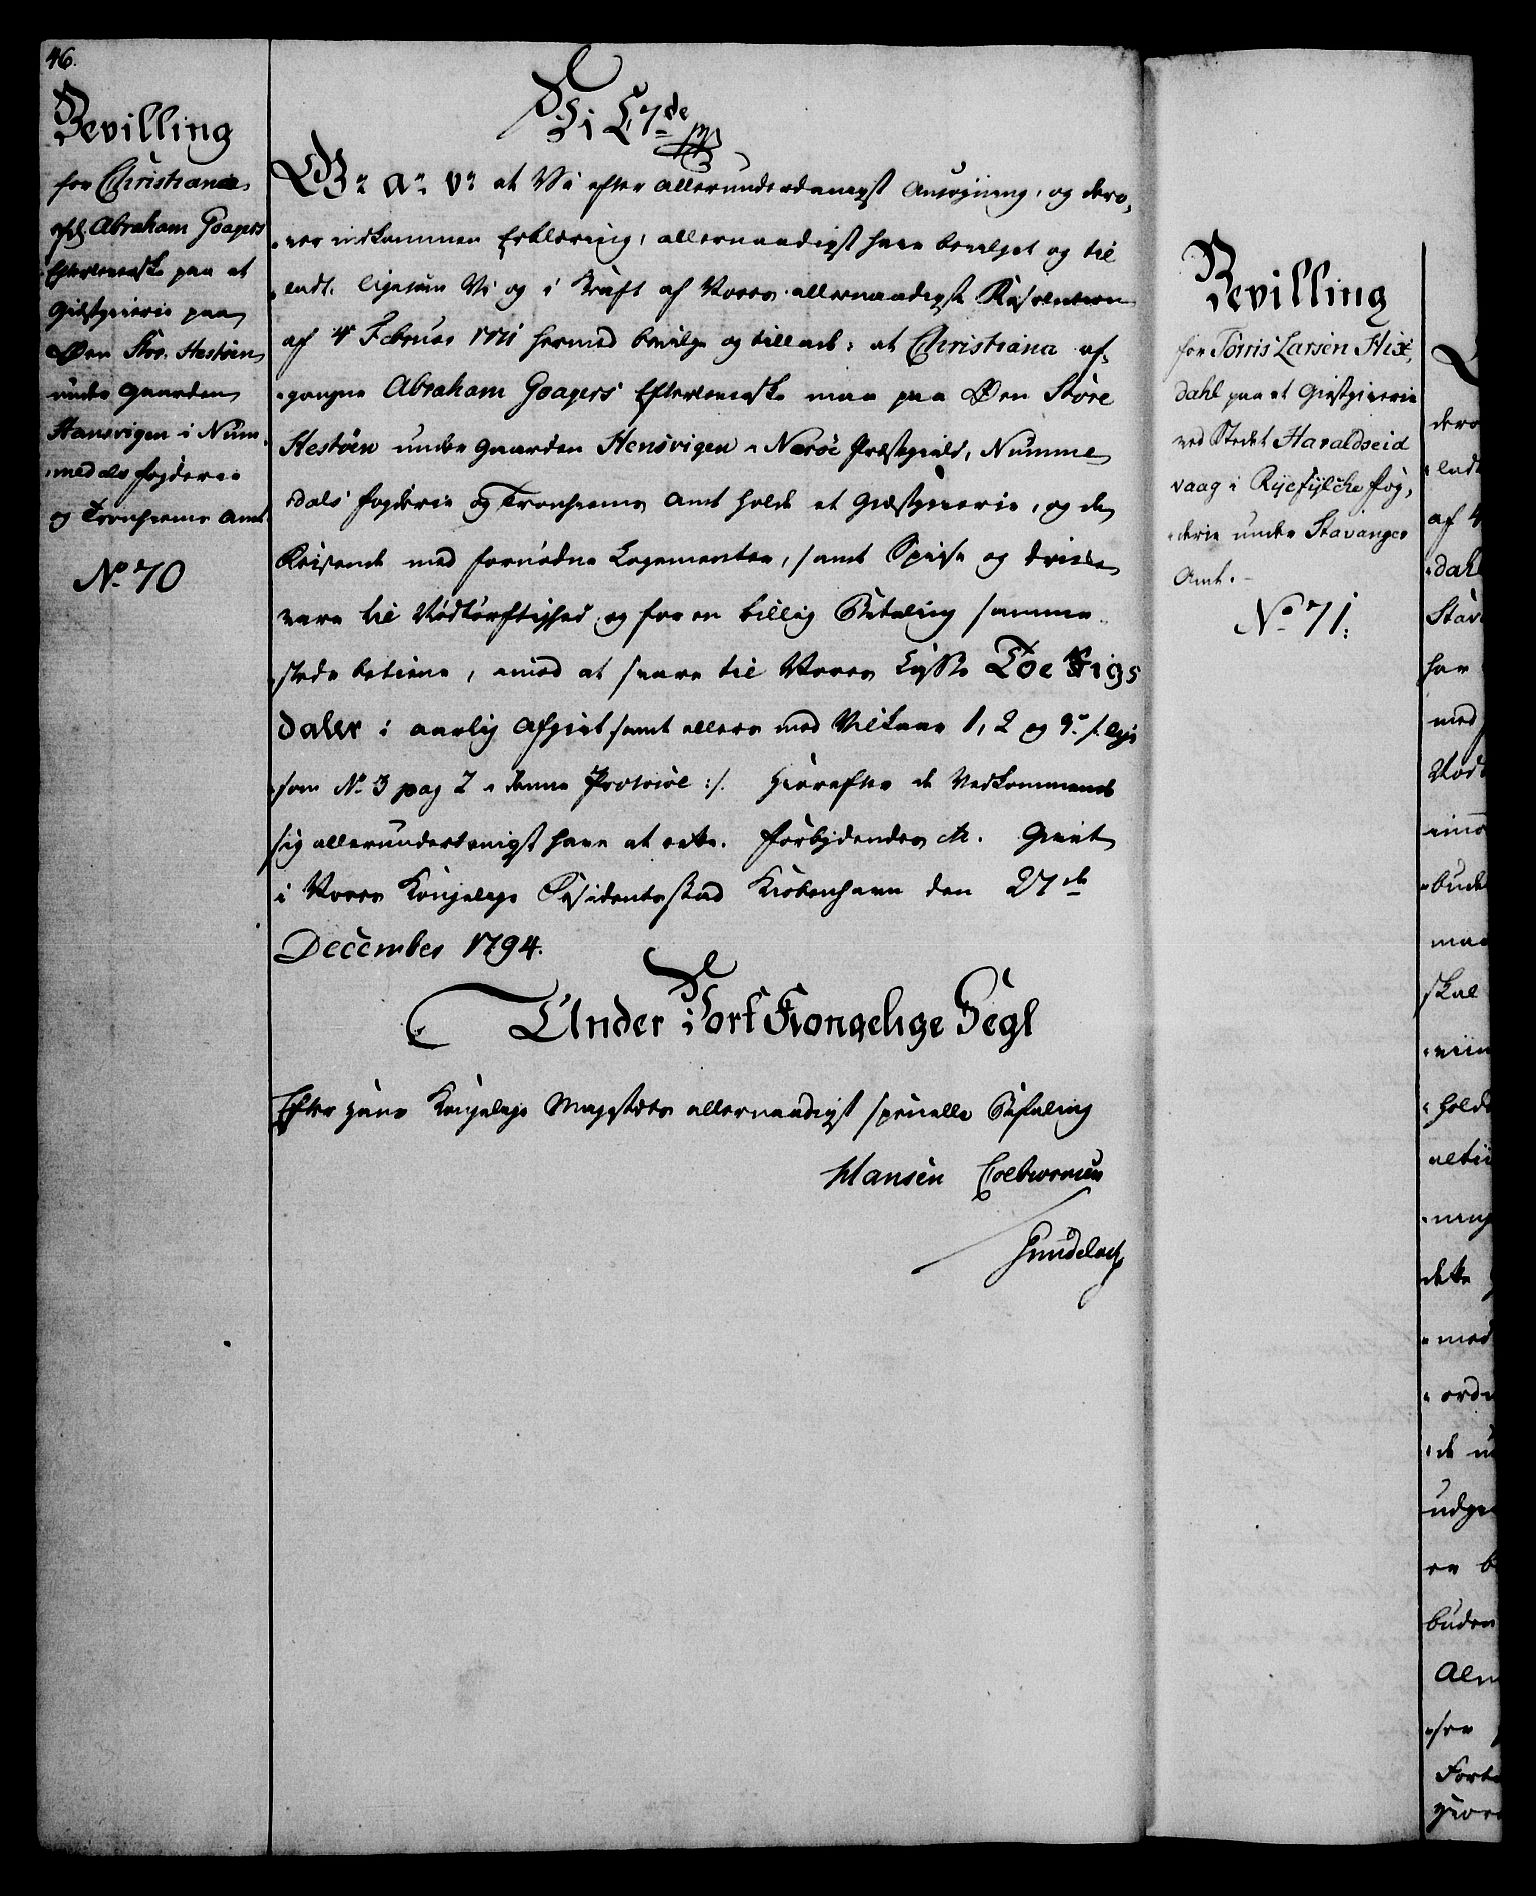 46.
Bevilling
for Christiana
afg. Abraham Goagers
Efterleverske paa et
Giæstgiverie paa
Øen Stor Hestøen
under Gaarden
Hansvigen i Num¬
medals Fogderie
og Tronhiems Amt
No. 70
Vi C 7de
G: A: V: at Vi efter allerunderdanigst Ansøgning, og der¬
over indkommen Erklæring, allernaadigst have bevilget og til
ladt, ligesom Vi og i Kraft af Vores allernaadigste Resolution
af 4 Februar 1771 hermed bevilge og tillade: at Christiana af¬
gangne Abraham Goagers Efterleverske maa paa Øen Store
Hestöen under Gaarden Hensvigen i Næröe Præstegield, Numme
dals Fogderie og Tronhiems Amt holde et Giæstgiverie, og de
Reisende med fornödne Logementer, samt Spise og Drikke
vare til Nödtörftighed og for en billig Betaling samme¬
steds betiene, imod at svare til Vores Casse Toe Rigs
daler i aarlig Afgivt samt ellers med Vilkaar 1, 2 og 3: /: lige
som No 3 pag 2 i denne Protocol :/. Hvorefter de Vedkommende
sig allerunderdanigst have at rette. Forbydendes etc. Givet
i Vores Kongelige Residentsstad Kiöbenhavn den 27de
December 1794.
Under Vort Kongelige Segl
Efter Hans Kongelige Majestæts allernaadigst specielle Befaling
Hansen Colbiørnsen
Gundelach
Bevilling
for Törris Larsen Hix¬
dahl paa et Giæstgiverie
ved Stedet Haraldseid
vaag i Ryefylche Fog¬
derie under Stavanger
Amt.
No 71.